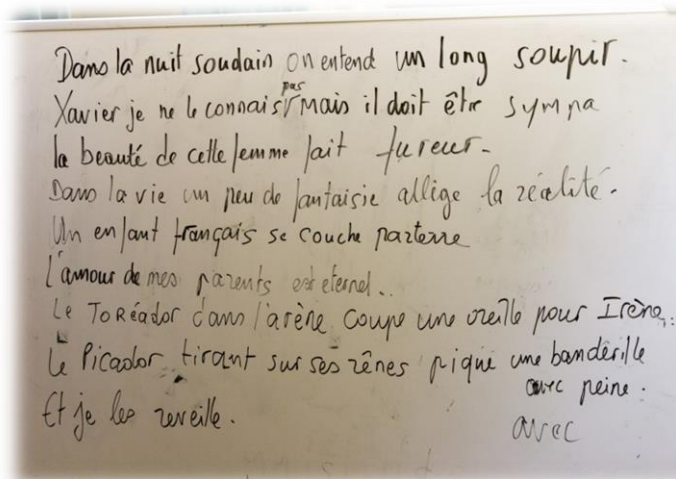 Dans la nuit soudain on entend un long soupir.
pas
Xavier je ne le connais mais il doit être sympa
la beauté de cette femme fait fureur.
Dans la vie un peu de fantaisie allège la réalité.
Un enfant français se couche parterre
l'amour de mes parents est eternel..
Le Toréador dans l'arène coupe une oreille pour Irène.
Le Picador tirant sur ses rênes pique une banderille
avec peine.
Et je les reveille.
avec